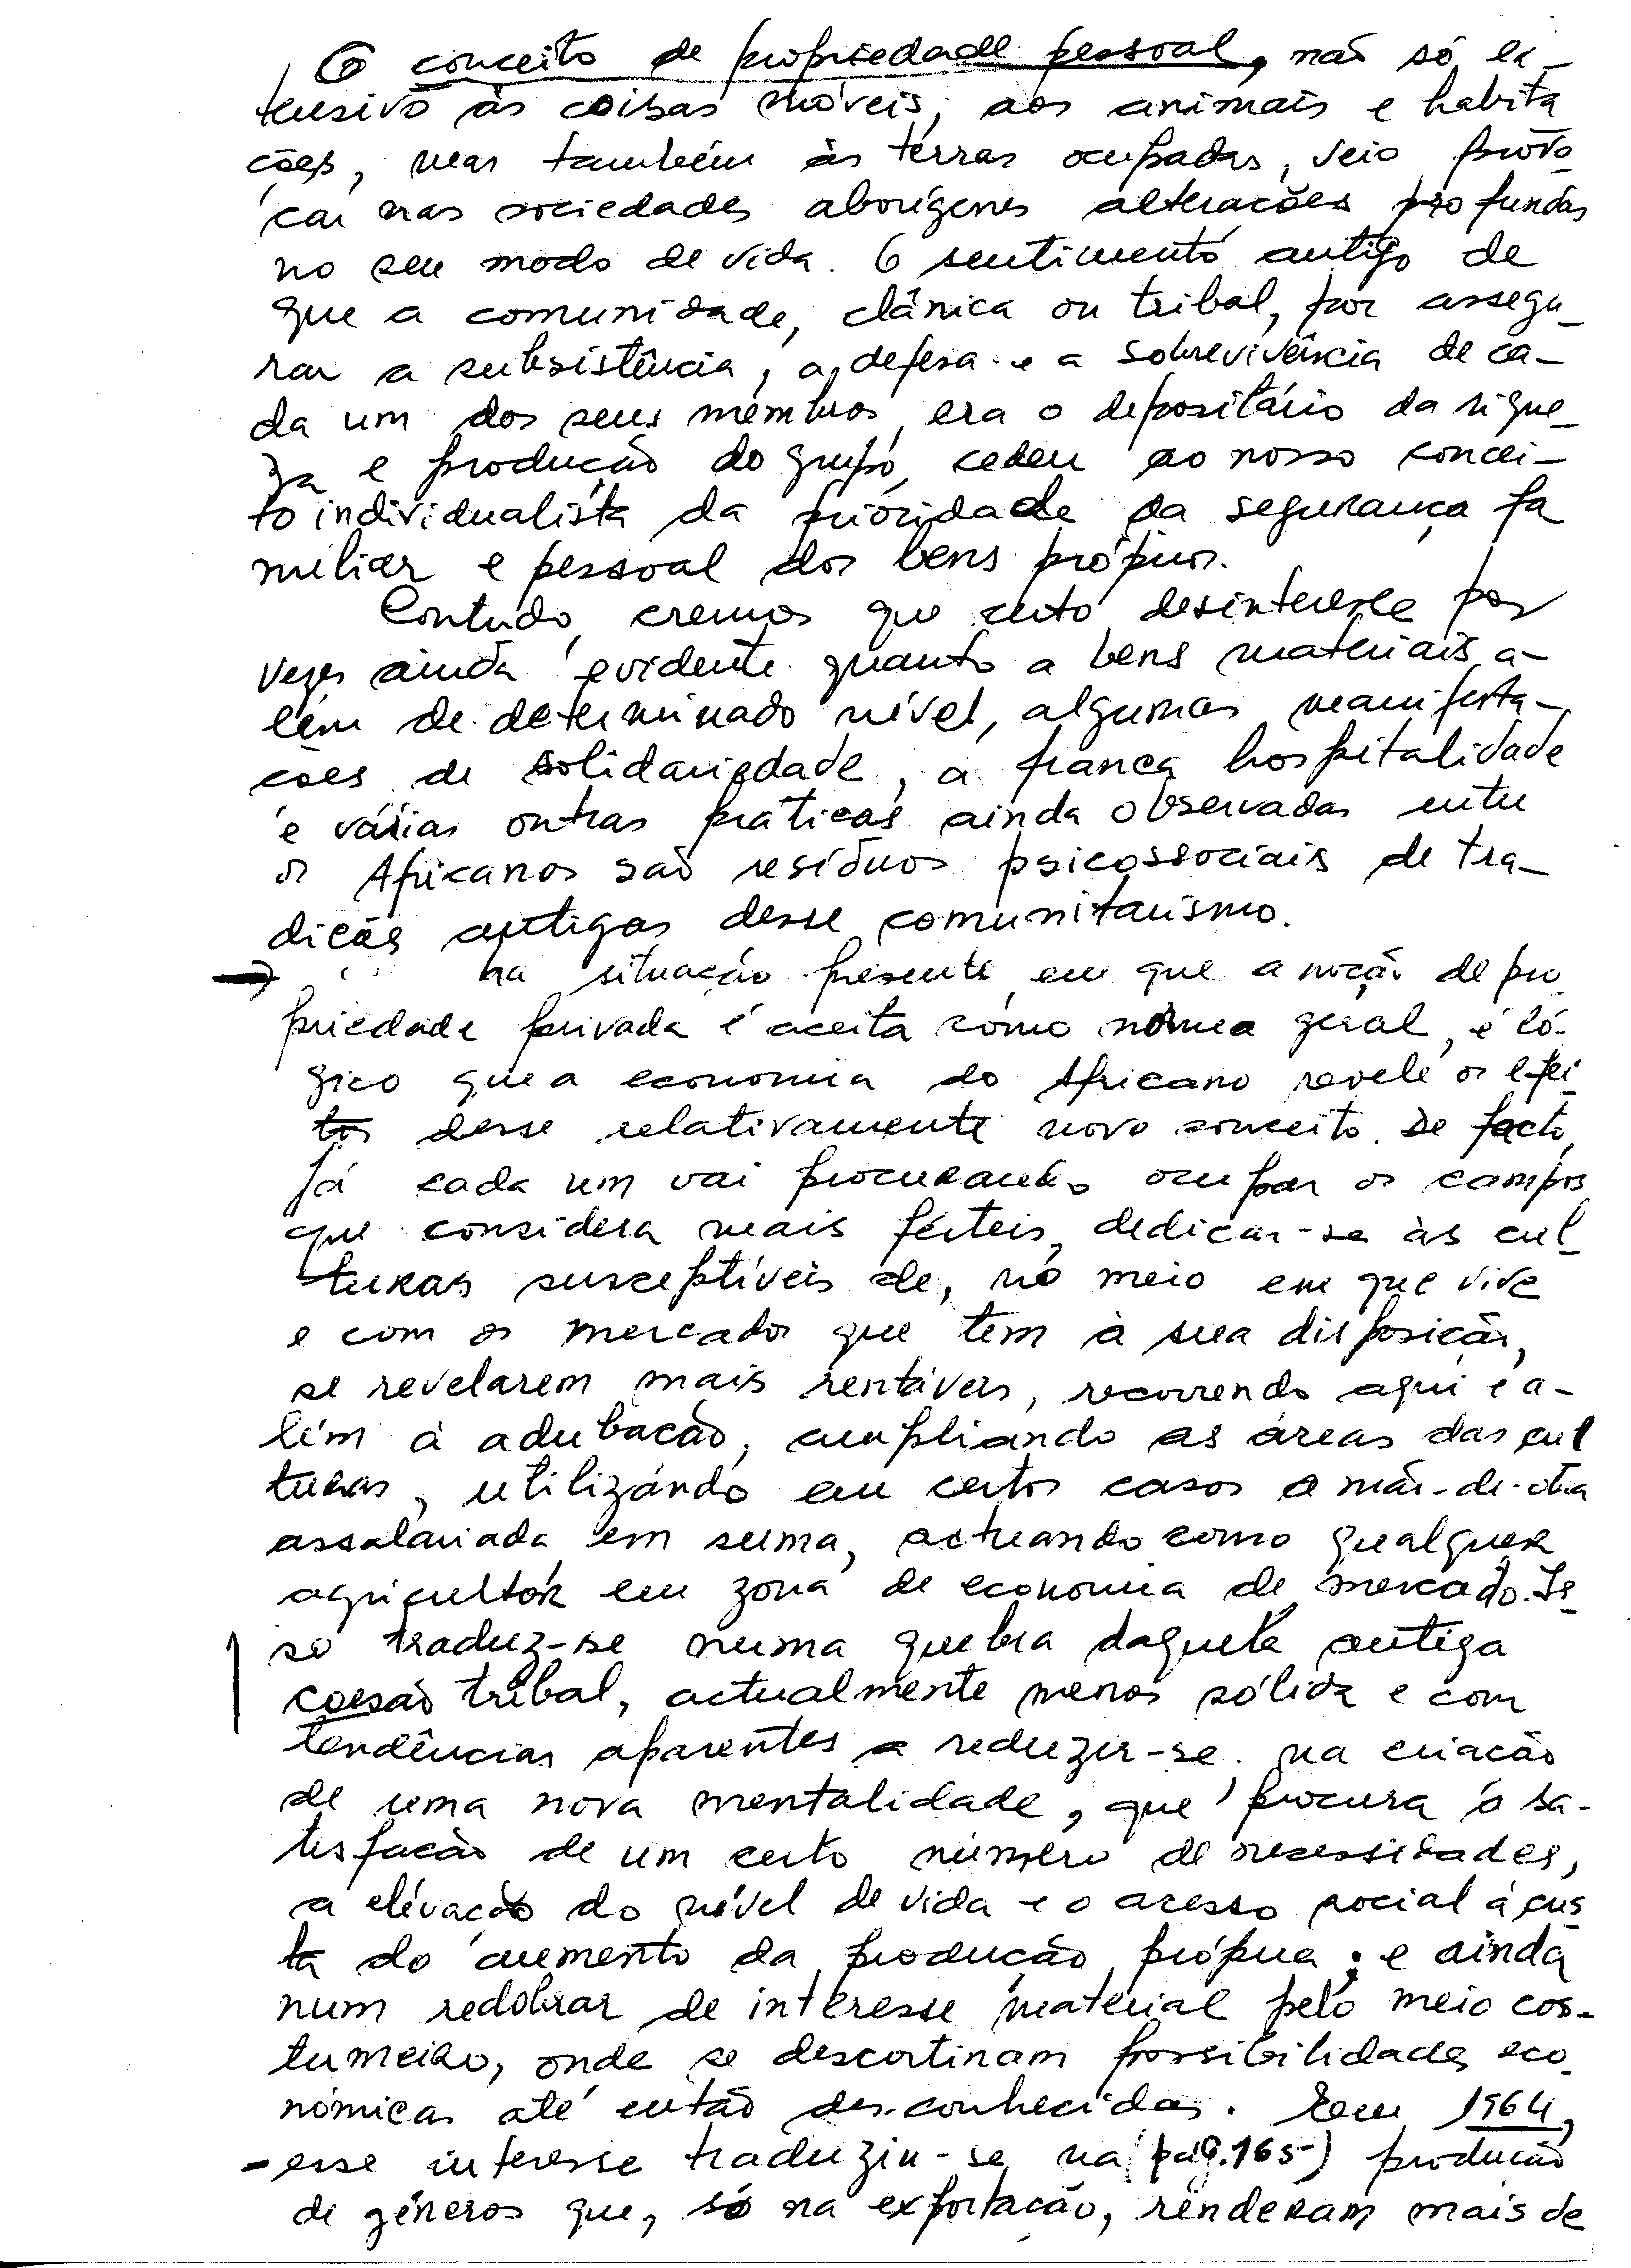 O conceito de propriedade pessoal, não só ex-
tensivo às coisas móveis, aos animais e habita
ções, mas também às terras ocupadas, veio provo-
car nas sociedades aborígenes alterações profundas
no seu modo de vida. O sentimento antigo de
que a comunidade, clânica ou tribal, por assegu-
rar a subsistência, a defesa e a sobrevivência de ca-
da um dos seus membros, era o depositário da rique-
za e produção do grupo, cedeu ao nosso concei-
to individualista da prioridade da segurança fa
miliar e pessoal dos bens próprios.
Contudo, cremos que certo desinteresse por
vezes ainda evidente quanto a bens materiais, a-
lém de determinado nível, algumas manifesta-
ções de solidariedade, a franca hospitalidade
e várias outras práticas ainda observadas entre
os Africanos são resíduos psicossociais de tra-
dições antigas desse comunitarismo.
→ na situação presente, em que a noção de pro
priedade privada é aceita como norma geral, é ló-
gico que a economia do Africano revele os efei-
tos desse relativamente novo conceito. De facto,
já cada um vai procurando ocupar os campos
que considera mais férteis, dedicar-se às cul-
turas susceptíveis de, no meio em que vive
e com os mercados que tem à sua disposição,
se revelarem mais rentáveis, recorrendo aqui e a-
lém à adubação, ampliando as áreas das cul
turas, utilizando em certos casos a mão-de-obra
assalariada, em suma, actuando como qualquer
agricultor em zona de economia de mercado. Is-
so traduz-se numa quebra daquela antiga
coesão tribal, actualmente menos sólida e com
tendências aparentes a reduzir-se. na criação
de uma nova mentalidade, que procura a sa-
tisfação de um certo número de necessidades,
a elevação do nível de vida e o acesso social à cus-
ta do aumento da produção própria; e ainda
num redobrar de interesse material pelo meio cos-
tumeiro, onde se descortinam possibilidades eco-
nómicas até então desconhecidas. Em 1964,
- esse interesse traduziu-se na (pág.165) produção
de géneros que, só na exportação, renderam mais de